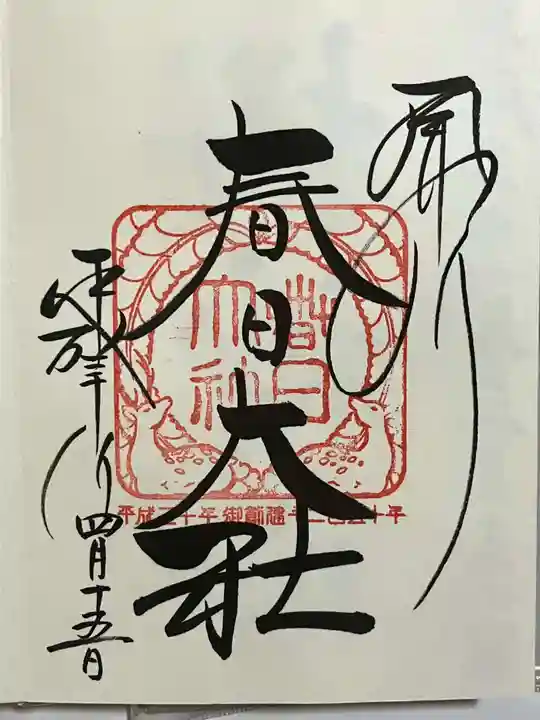 奉拝
春日大社
春日
大社
平成三十年 御創建千二百五十年
平成三十年四月十五日